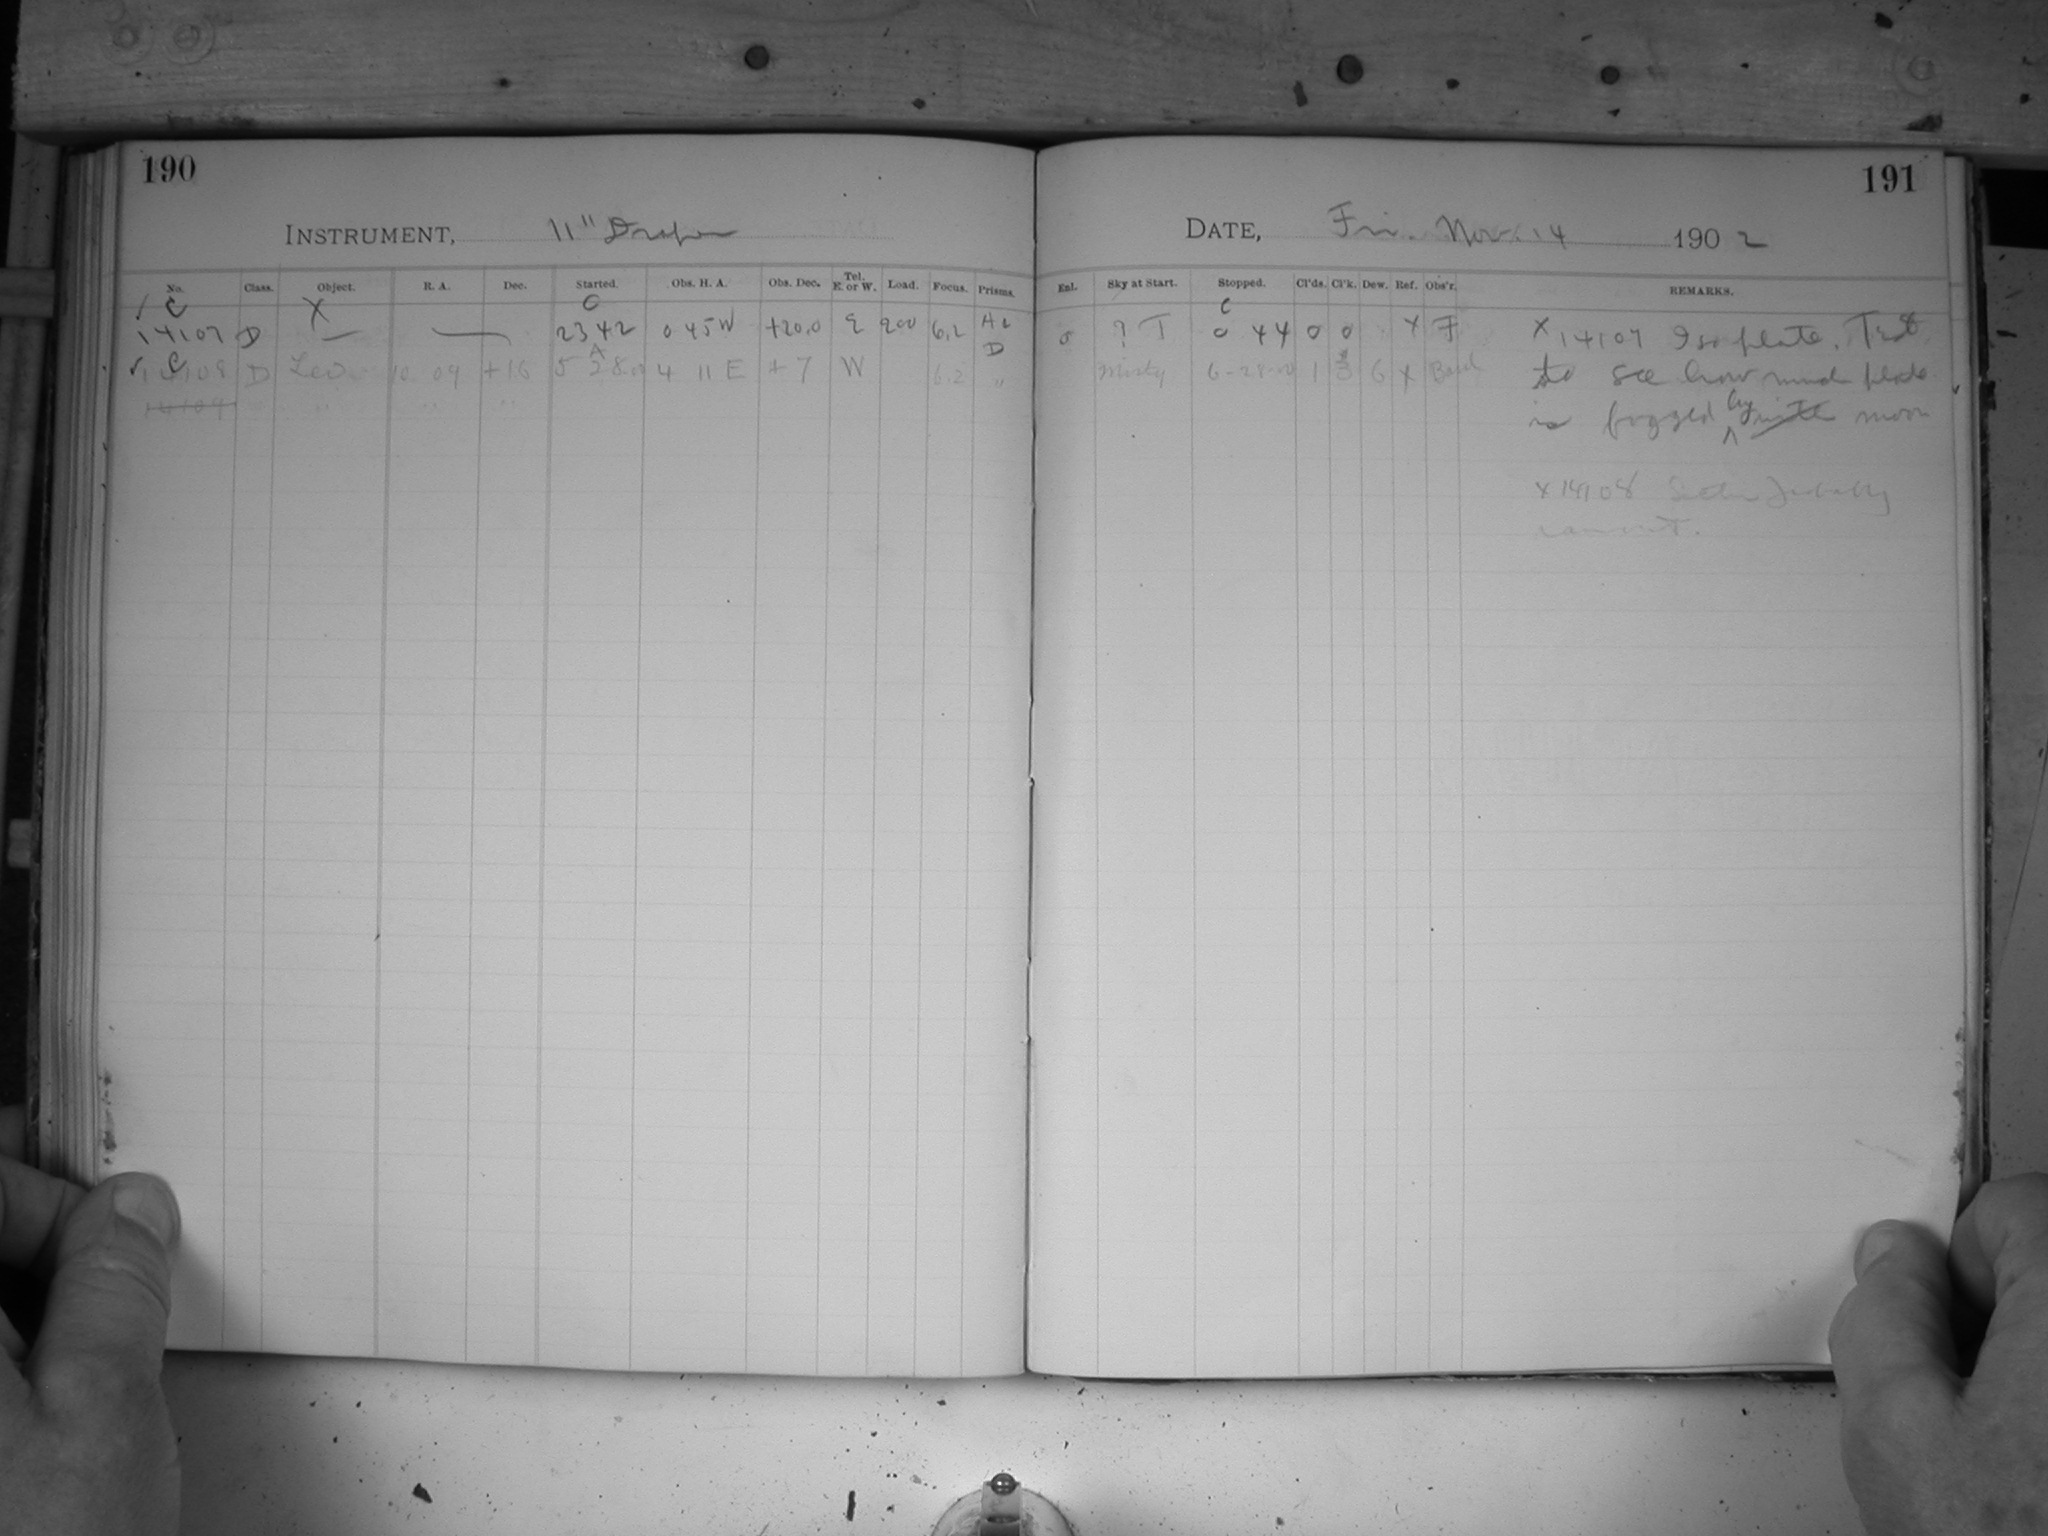 190
INSTRUMENT, 11" Draper
No. Class. Object. R. A. Dec. Started. Obs. H. A. Obs. Dec. Tel. E. or W. Load. Focus. Prisms.
C X C
14107 D — — 23 42 0 45 W +20.0 E 900 6.2
D
14108 D Leo. 10 09 +16 5 28.0 4 11 E +7 W 6.2 "
14109 " " "
191
DATE, Fri. Nov. 14 1902
Enl. Sky at Start. Stopped. Cl'ds. Cl'k. Dew. Ref. Obs'r. REMARKS.
C
0 ? T 0 44 0 0 X F X 14107 Iso plate. Test
Misty 6-28-0 1 3 6 X to see how much plate
is fogged by with moon
X 14108